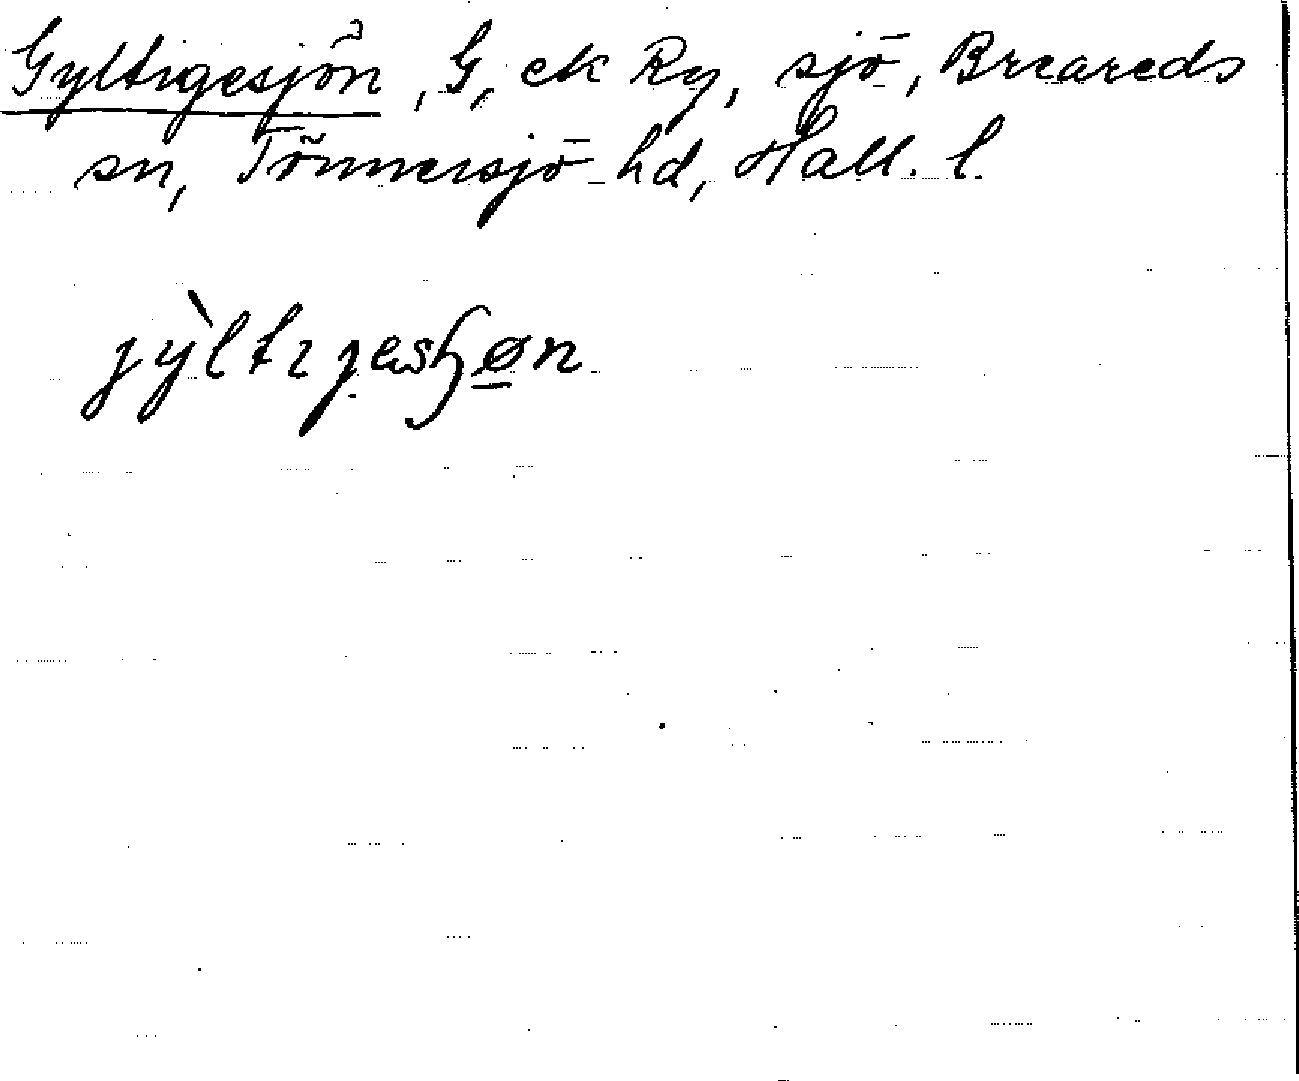 Gyltigesjön, G, ek Ry, sjö, Breareds
sn, Tönnersjö hd, Hall. l.
jỳltɩjesɧøn